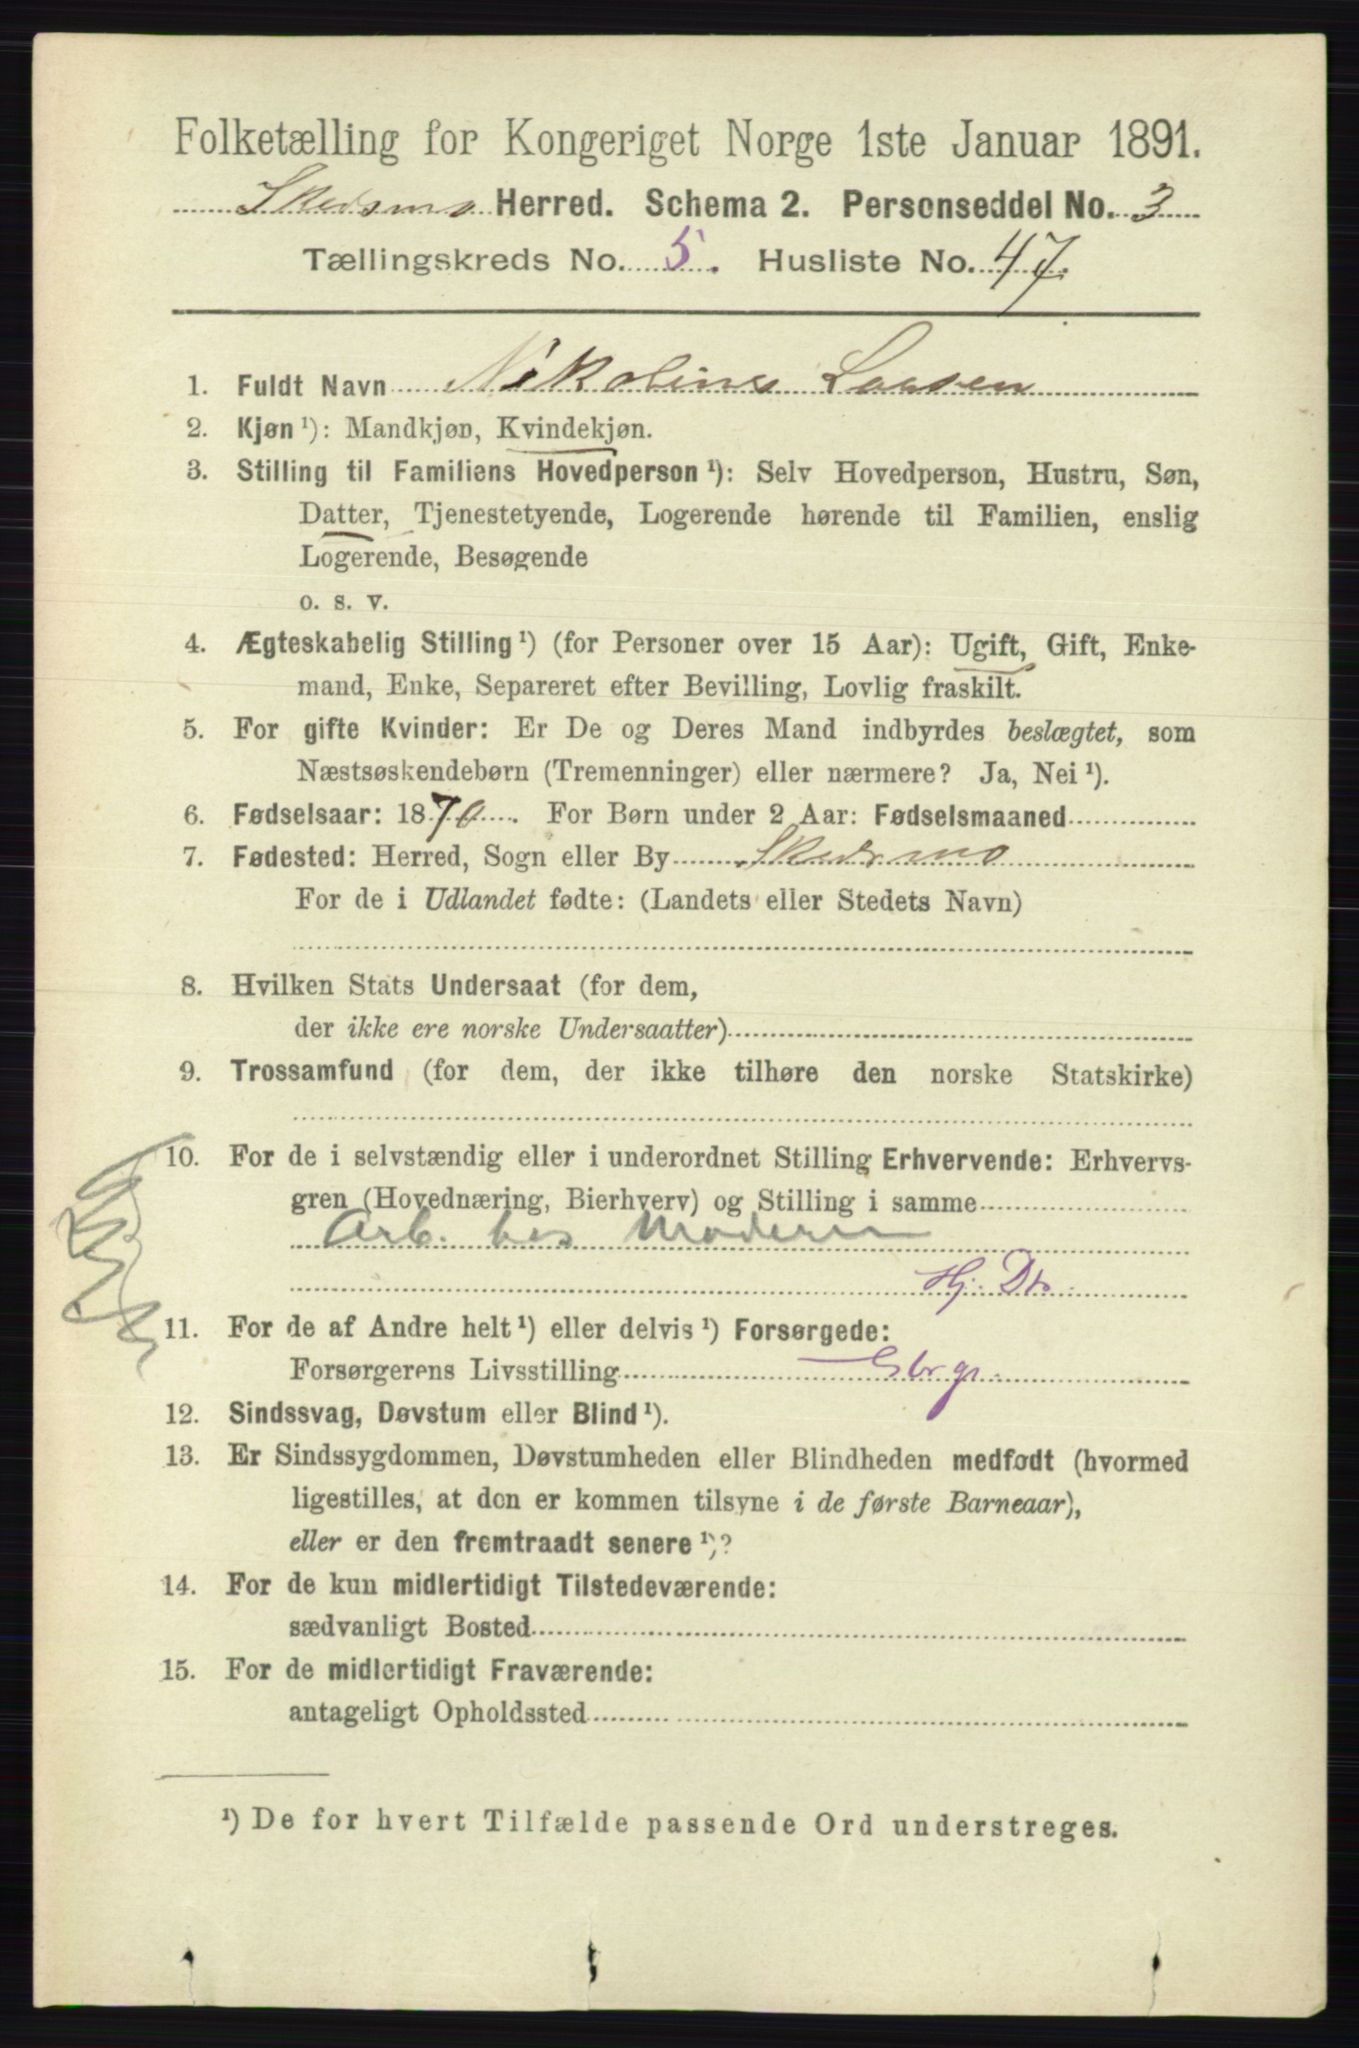 Folketælling for Kongeriget Norge 1ste Januar 1891.
Skedsmo Herred. Schema 2. Personseddel No. 3
Tællingskreds No. 5. Husliste No. 47.
1. Fuldt Navn Nikoline Larsen
2. Kjøn ¹): Mandkjøn, Kvindekjøn.
3. Stilling til Familiens Hovedperson ¹): Selv Hovedperson, Hustru, Søn,
Datter, Tjenestetyende, Logerende hørende til Familien, enslig
Logerende, Besøgende
o. s. v.
4. Ægteskabelig Stilling ¹) (for Personer over 15 Aar): Ugift, Gift, Enke-
mand, Enke, Separeret efter Bevilling, Lovlig fraskilt.
5. For gifte Kvinder: Er De og Deres Mand indbyrdes beslægtet, som
Næstsøskendebørn (Tremenninger) eller nærmere? Ja, Nei ¹).
6. Fødselsaar: 1870. For Børn under 2 Aar: Fødselsmaaned
7. Fødested: Herred, Sogn eller By Skedsmo
For de i Udlandet fødte: (Landets eller Stedets Navn)
8. Hvilken Stats Undersaat (for dem,
der ikke ere norske Undersaatter)
9. Trossamfund (for dem, der ikke tilhøre den norske Statskirke)
10. For de i selvstændig eller i underordnet Stilling Erhvervende: Erhvervs-
gren (Hovednæring, Bierhverv) og Stilling i samme
Arb. hos Moderen
Hj. Dtr.
11. For de af Andre helt ¹) eller delvis ¹) Forsørgede:
Forsørgerens Livsstilling Gbrgr.
12. Sindssvag, Døvstum eller Blind ¹).
13. Er Sindssygdommen, Døvstumheden eller Blindheden medfødt (hvormed
ligestilles, at den er kommen tilsyne i de første Barneaar),
eller er den fremtraadt senere ¹)?
14. For de kun midlertidigt Tilstedeværende:
sædvanligt Bosted
15. For de midlertidigt Fraværende:
antageligt Opholdssted
¹) De for hvert Tilfælde passende Ord understreges.